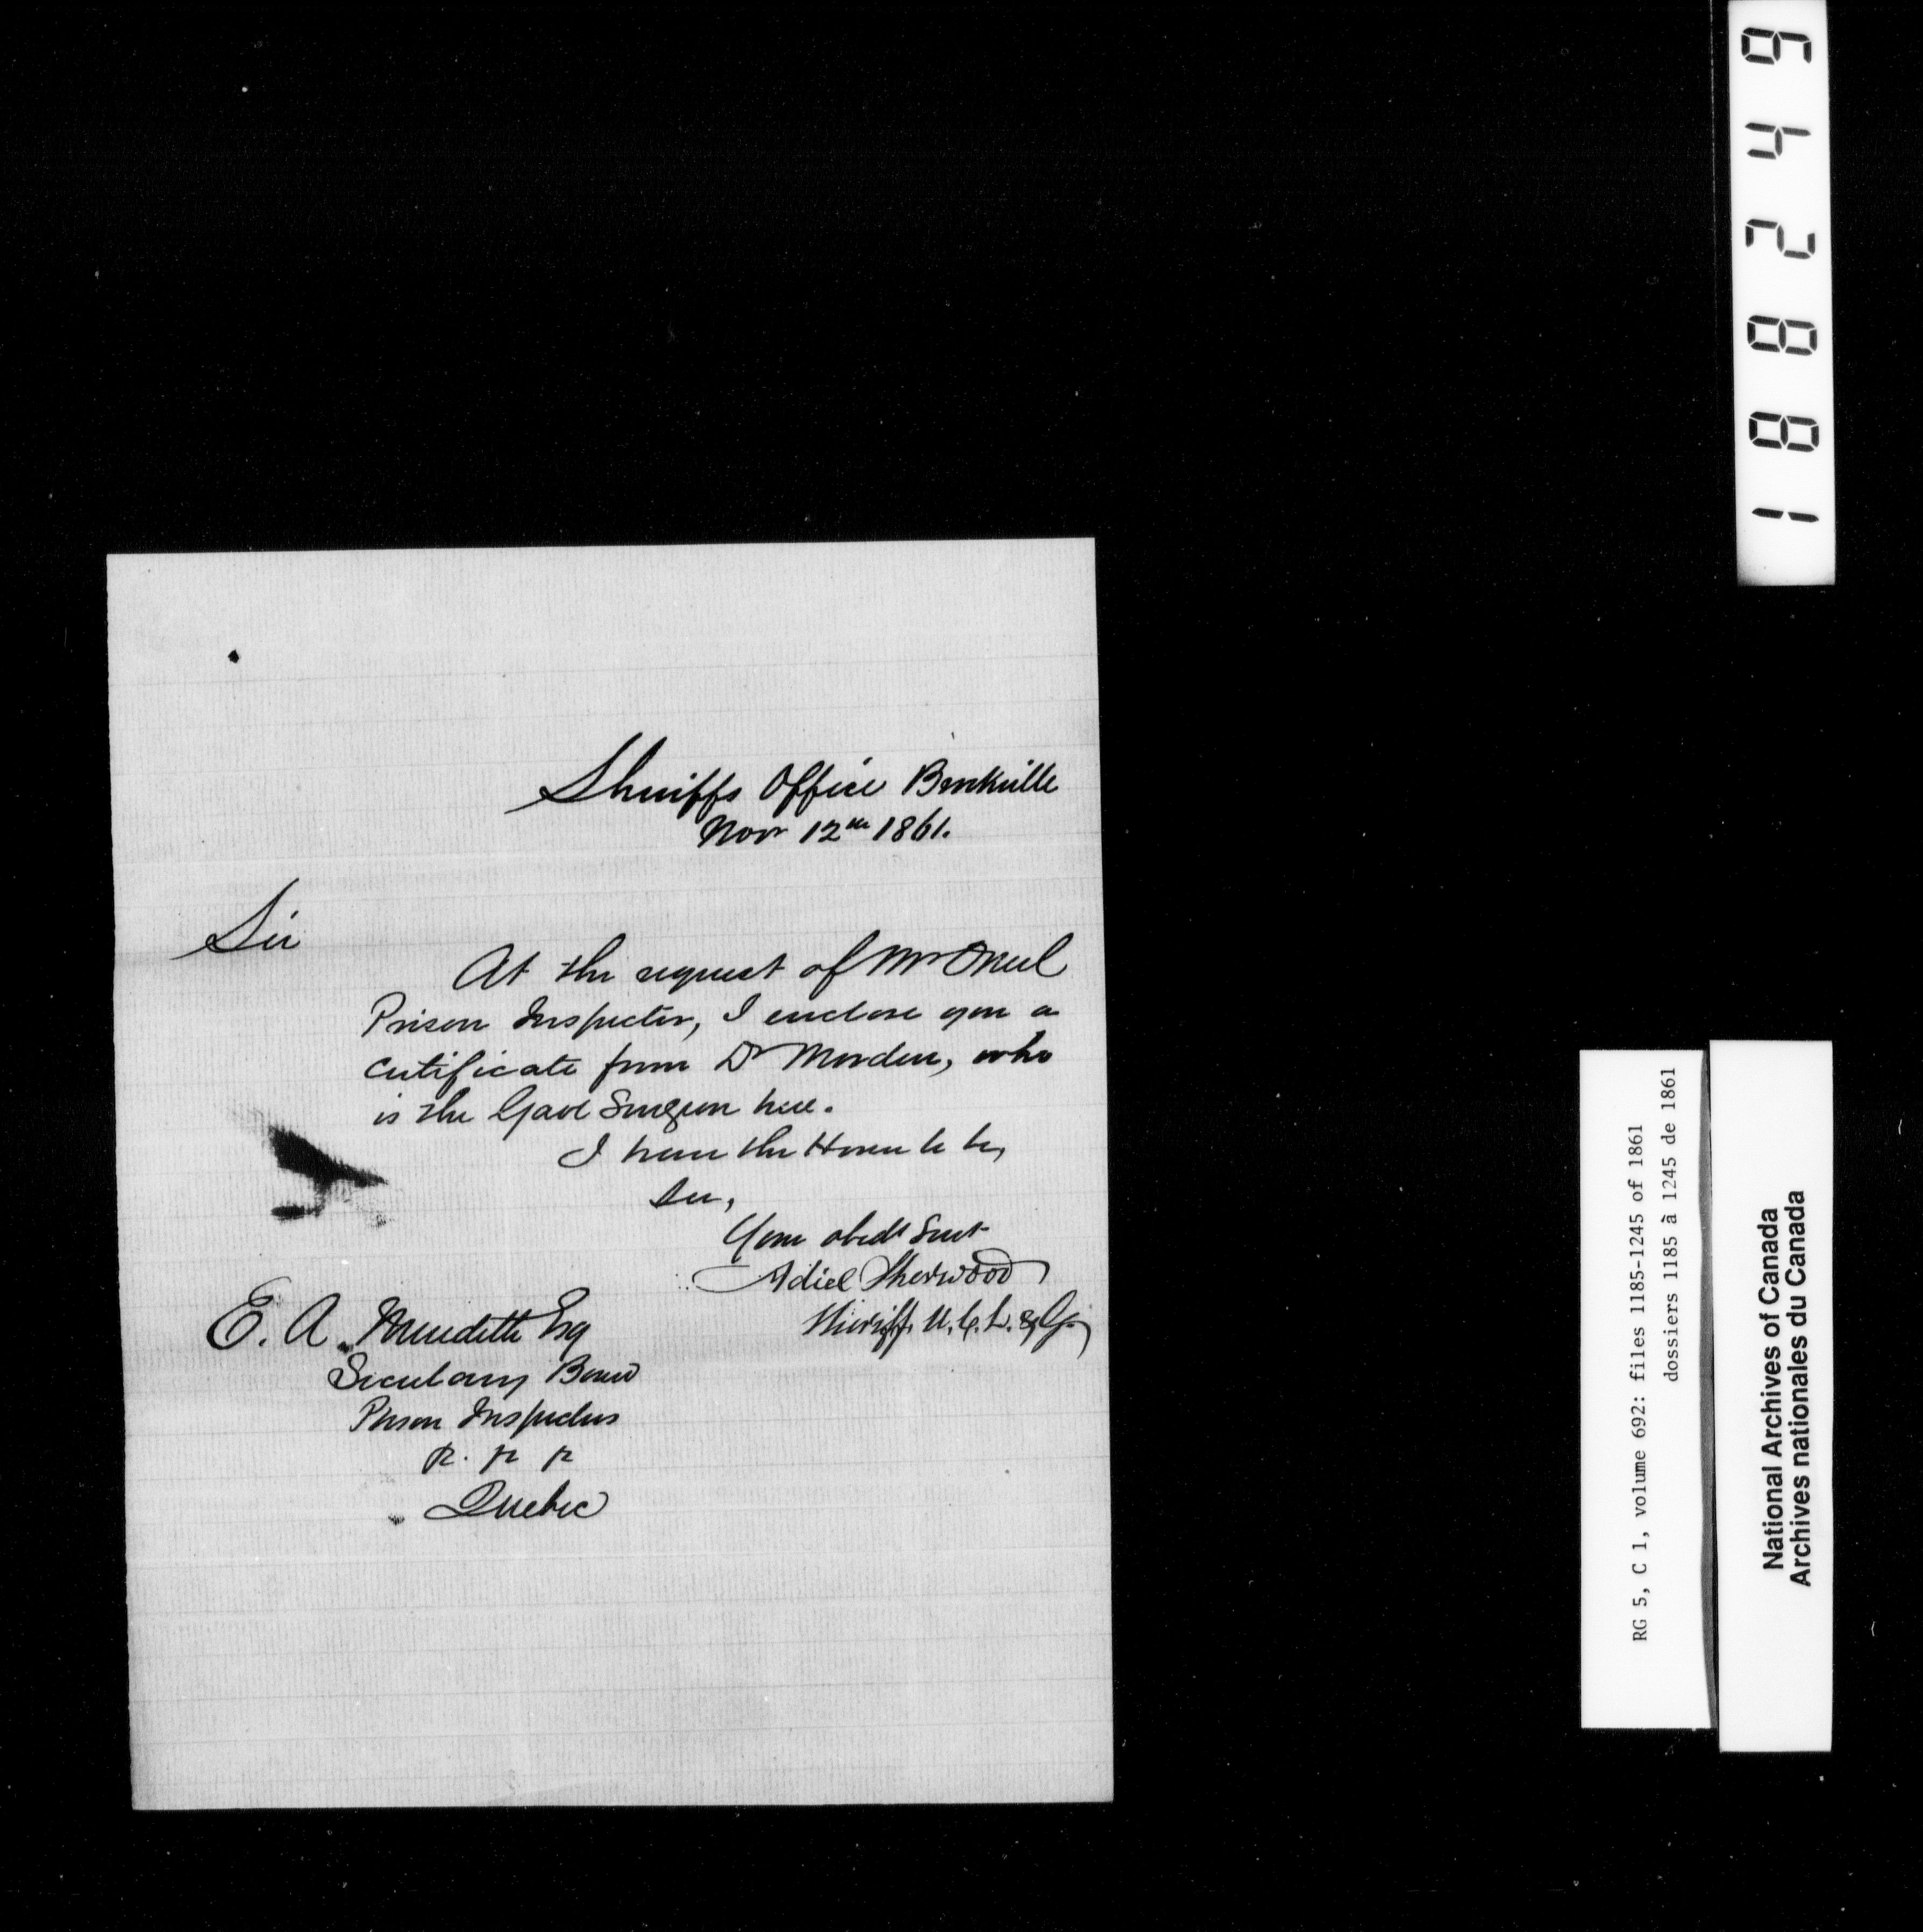 Sheriffs Office Brockville
Nov 12th 1861.
Sir
At the request of Mr O'Neil
Prison Inspector, I enclose you a
certificate from Dr Morden, who
is the Gaol Surgeon here.
I have the Honor to be,
Sir,
Your obedt Servt
Adiel Sherwood
Sheriff, U.C. L. & G.
E. A. Meredith Esq
Secretary Board
Prison Inspectors
Quebec
188249
RG 5, C 1, volume 692: files 1185-1245 of 1861
dossiers 1185 à 1245 de 1861
National Archives of Canada
Archives nationales du Canada